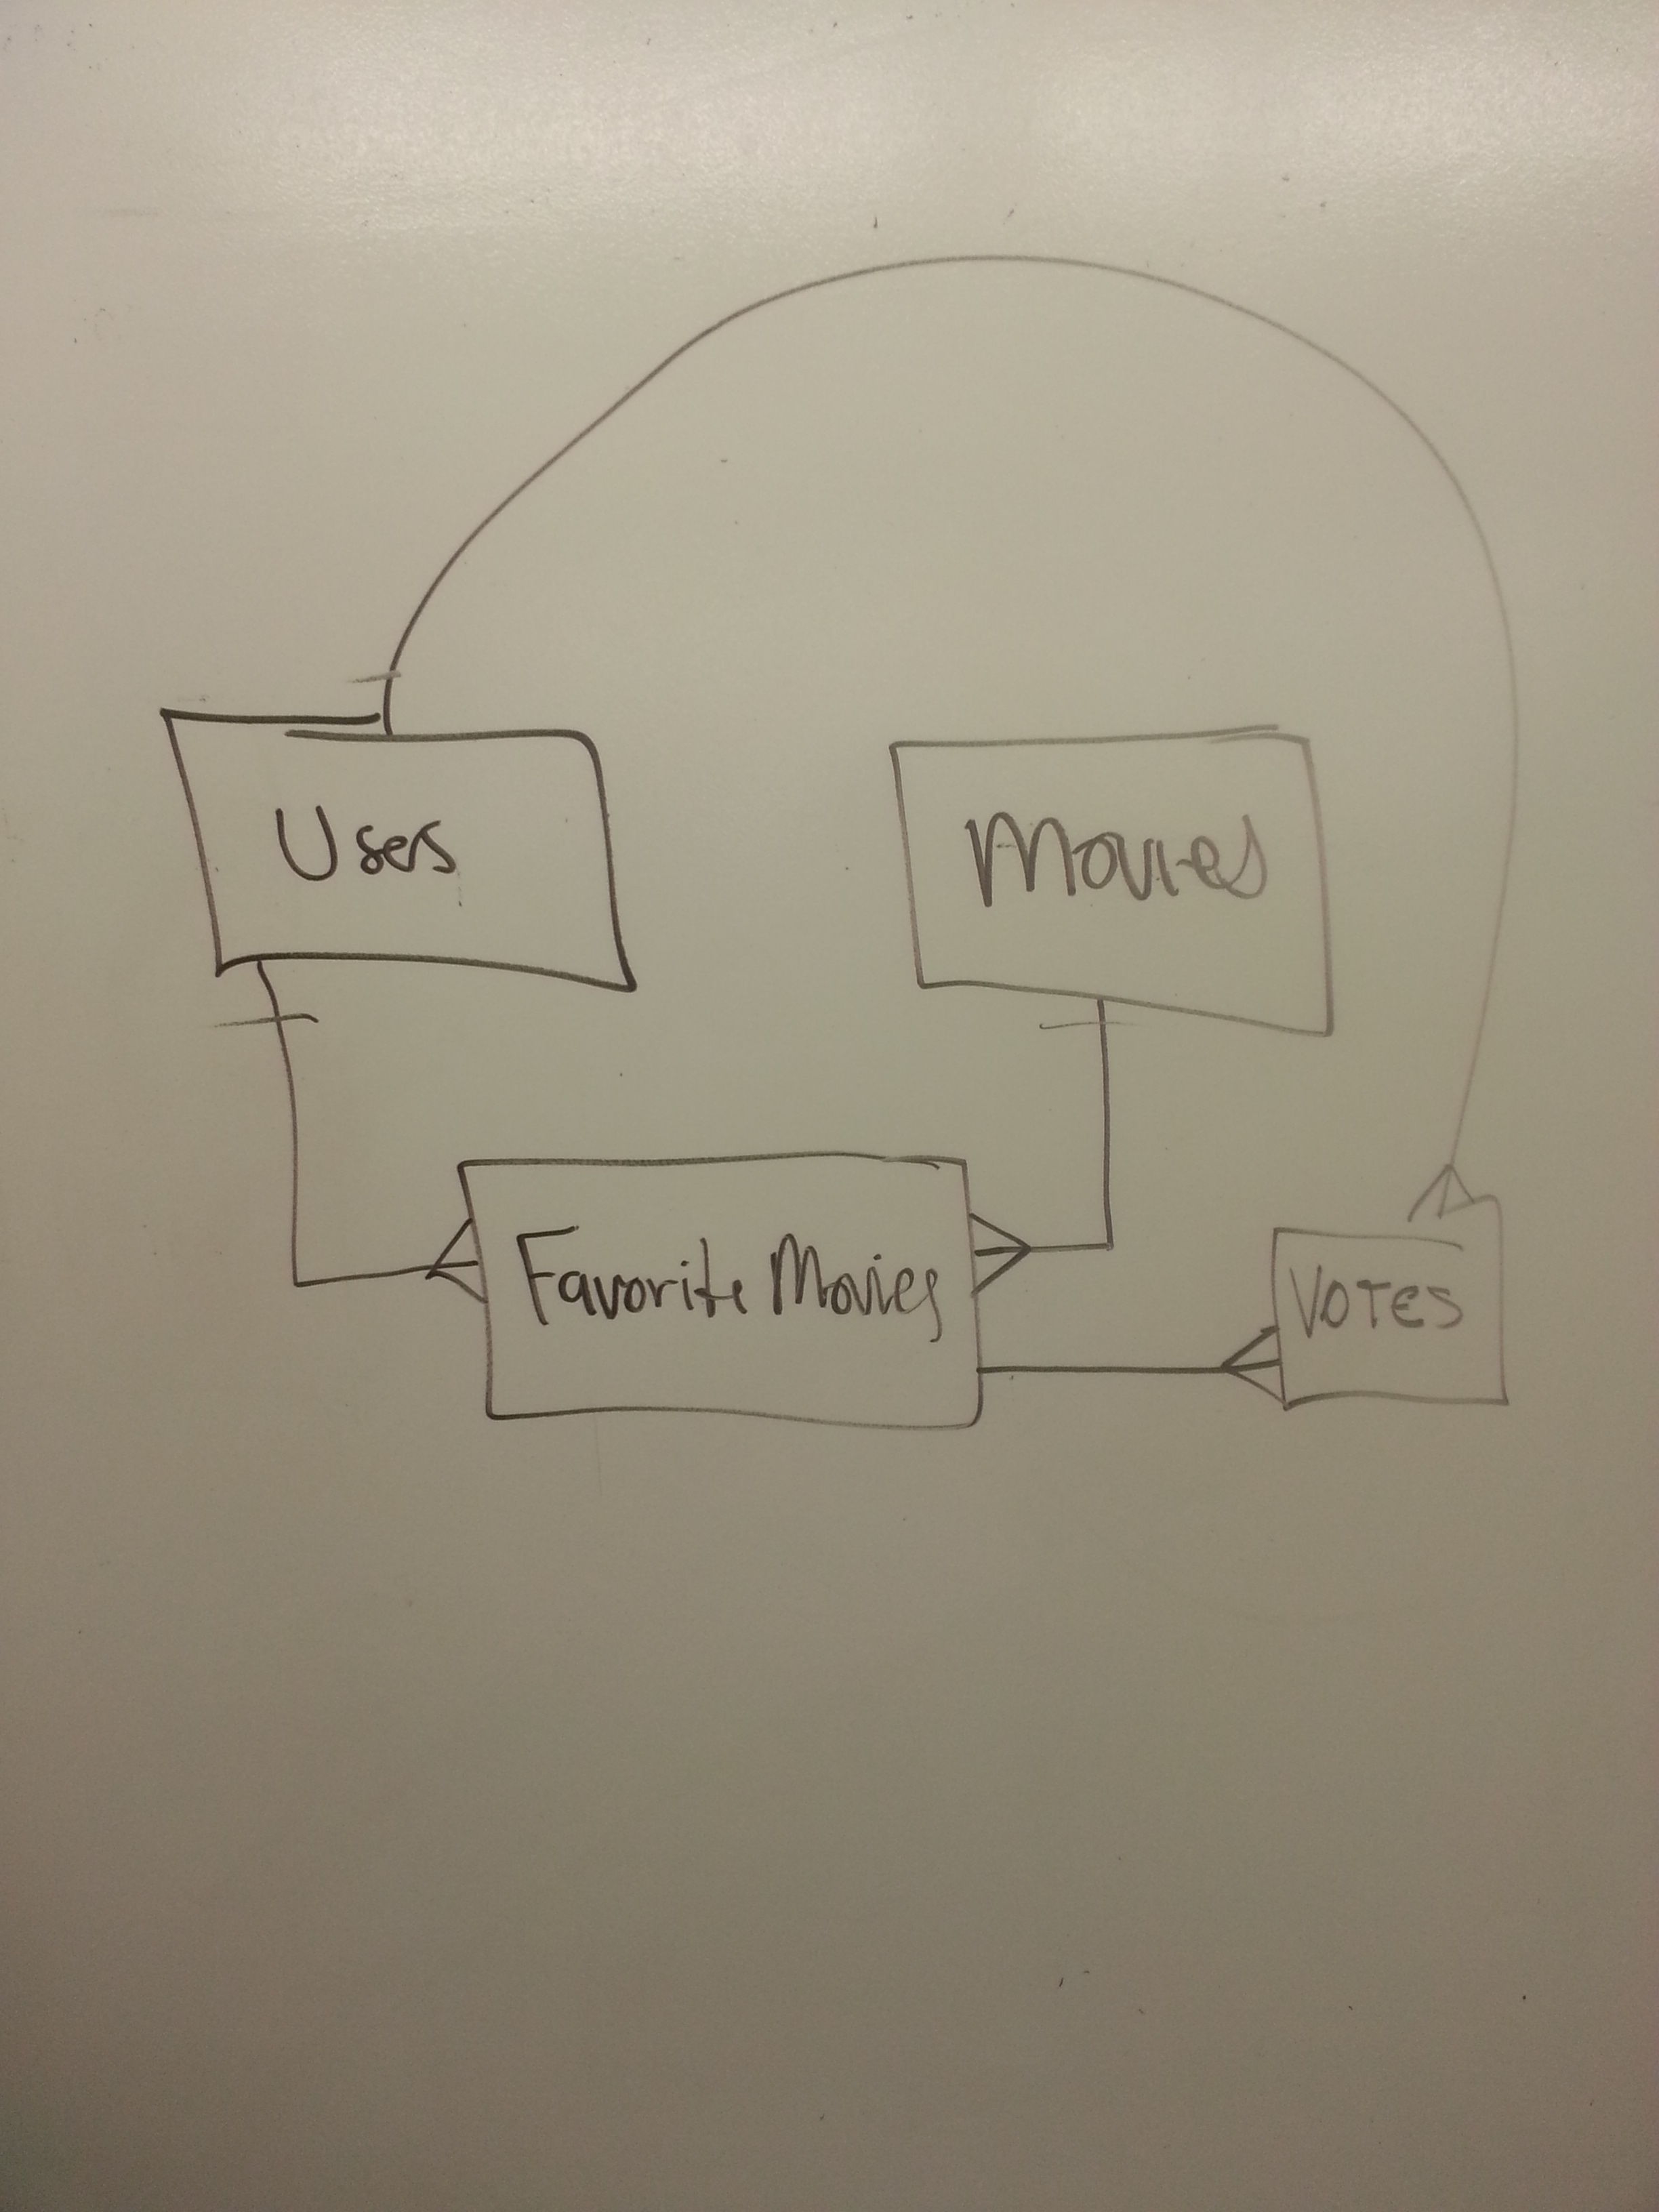 Users
Movies
Favorite Movies
VOTES